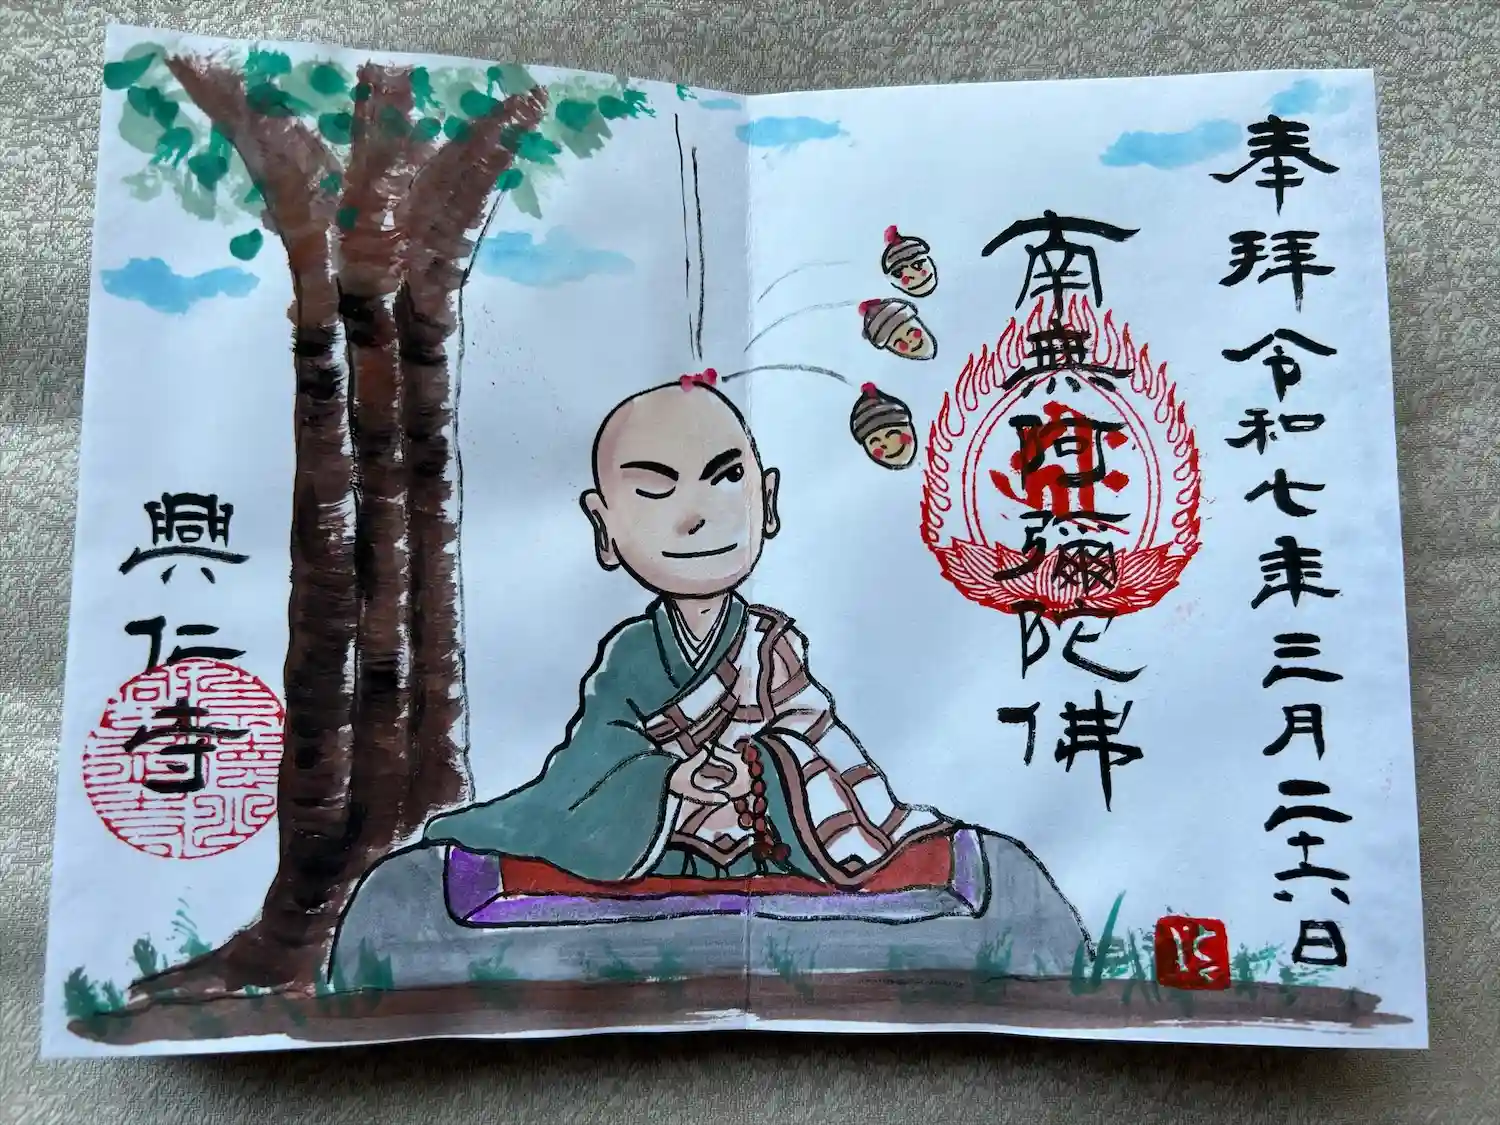 奉拜 令和七年三月二十六日
南無阿彌陀佛
興仁寺